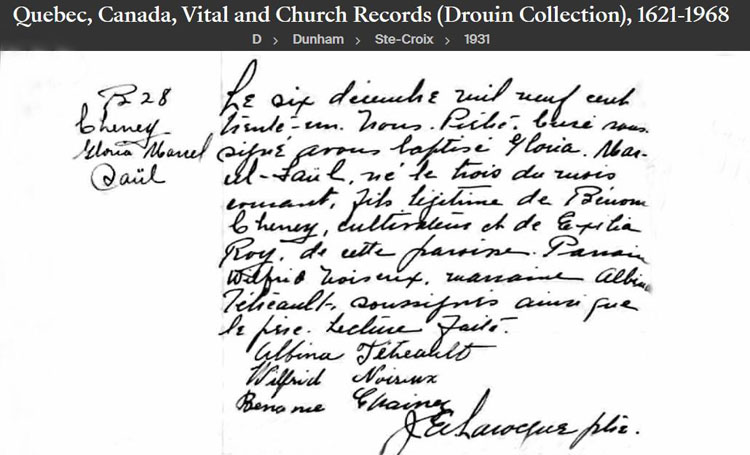 Quebec, Canada, Vital and Church Records (Drouin Collection), 1621-1968
D > Dunham > Ste-Croix > 1931
B 28
Cheney
Gloria Marcel
Saül
Le six décembre mil neuf cent
trente-un. Nous. Curé sous
signé avons baptisé Gloria. Mar-
cel-Saül, né le trois du mois
courant, fils légitime de Bénom
Cheney, cultivateur et de Exilia
Roy, de cette paroisse. Parrain
Wilfrid Noiseux, marraine Albina
Tétreault, soussignés ainsi que
le père. Lecture faite.
Albina Tétreault
Wilfrid Noiseux
Benonie Chainey
J E Larocque ptre.